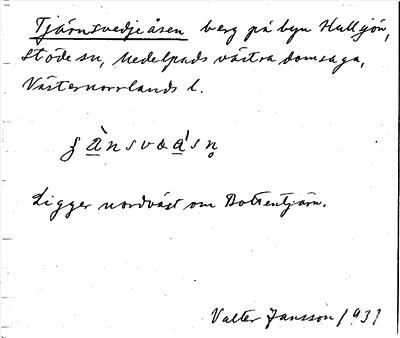 Tjärnsvedjeåsen berg på byn Hulsjön,
Stöde sn, Medelpads västra domsaga,
Västernorrlands l.
Ligger nordväst om Bottentjärn.
Valter Jansson 1931